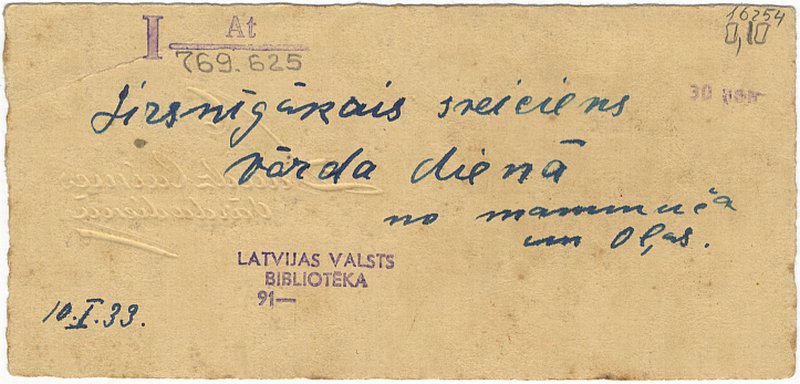 16254
0,10
I At
769.625
30 коп
Sirsnīgākais sveiciens
vārda dienā
no mammuča
un Oļas.
LATVIJAS VALSTS
BIBLIOTĒKA
91—
10.I.33.